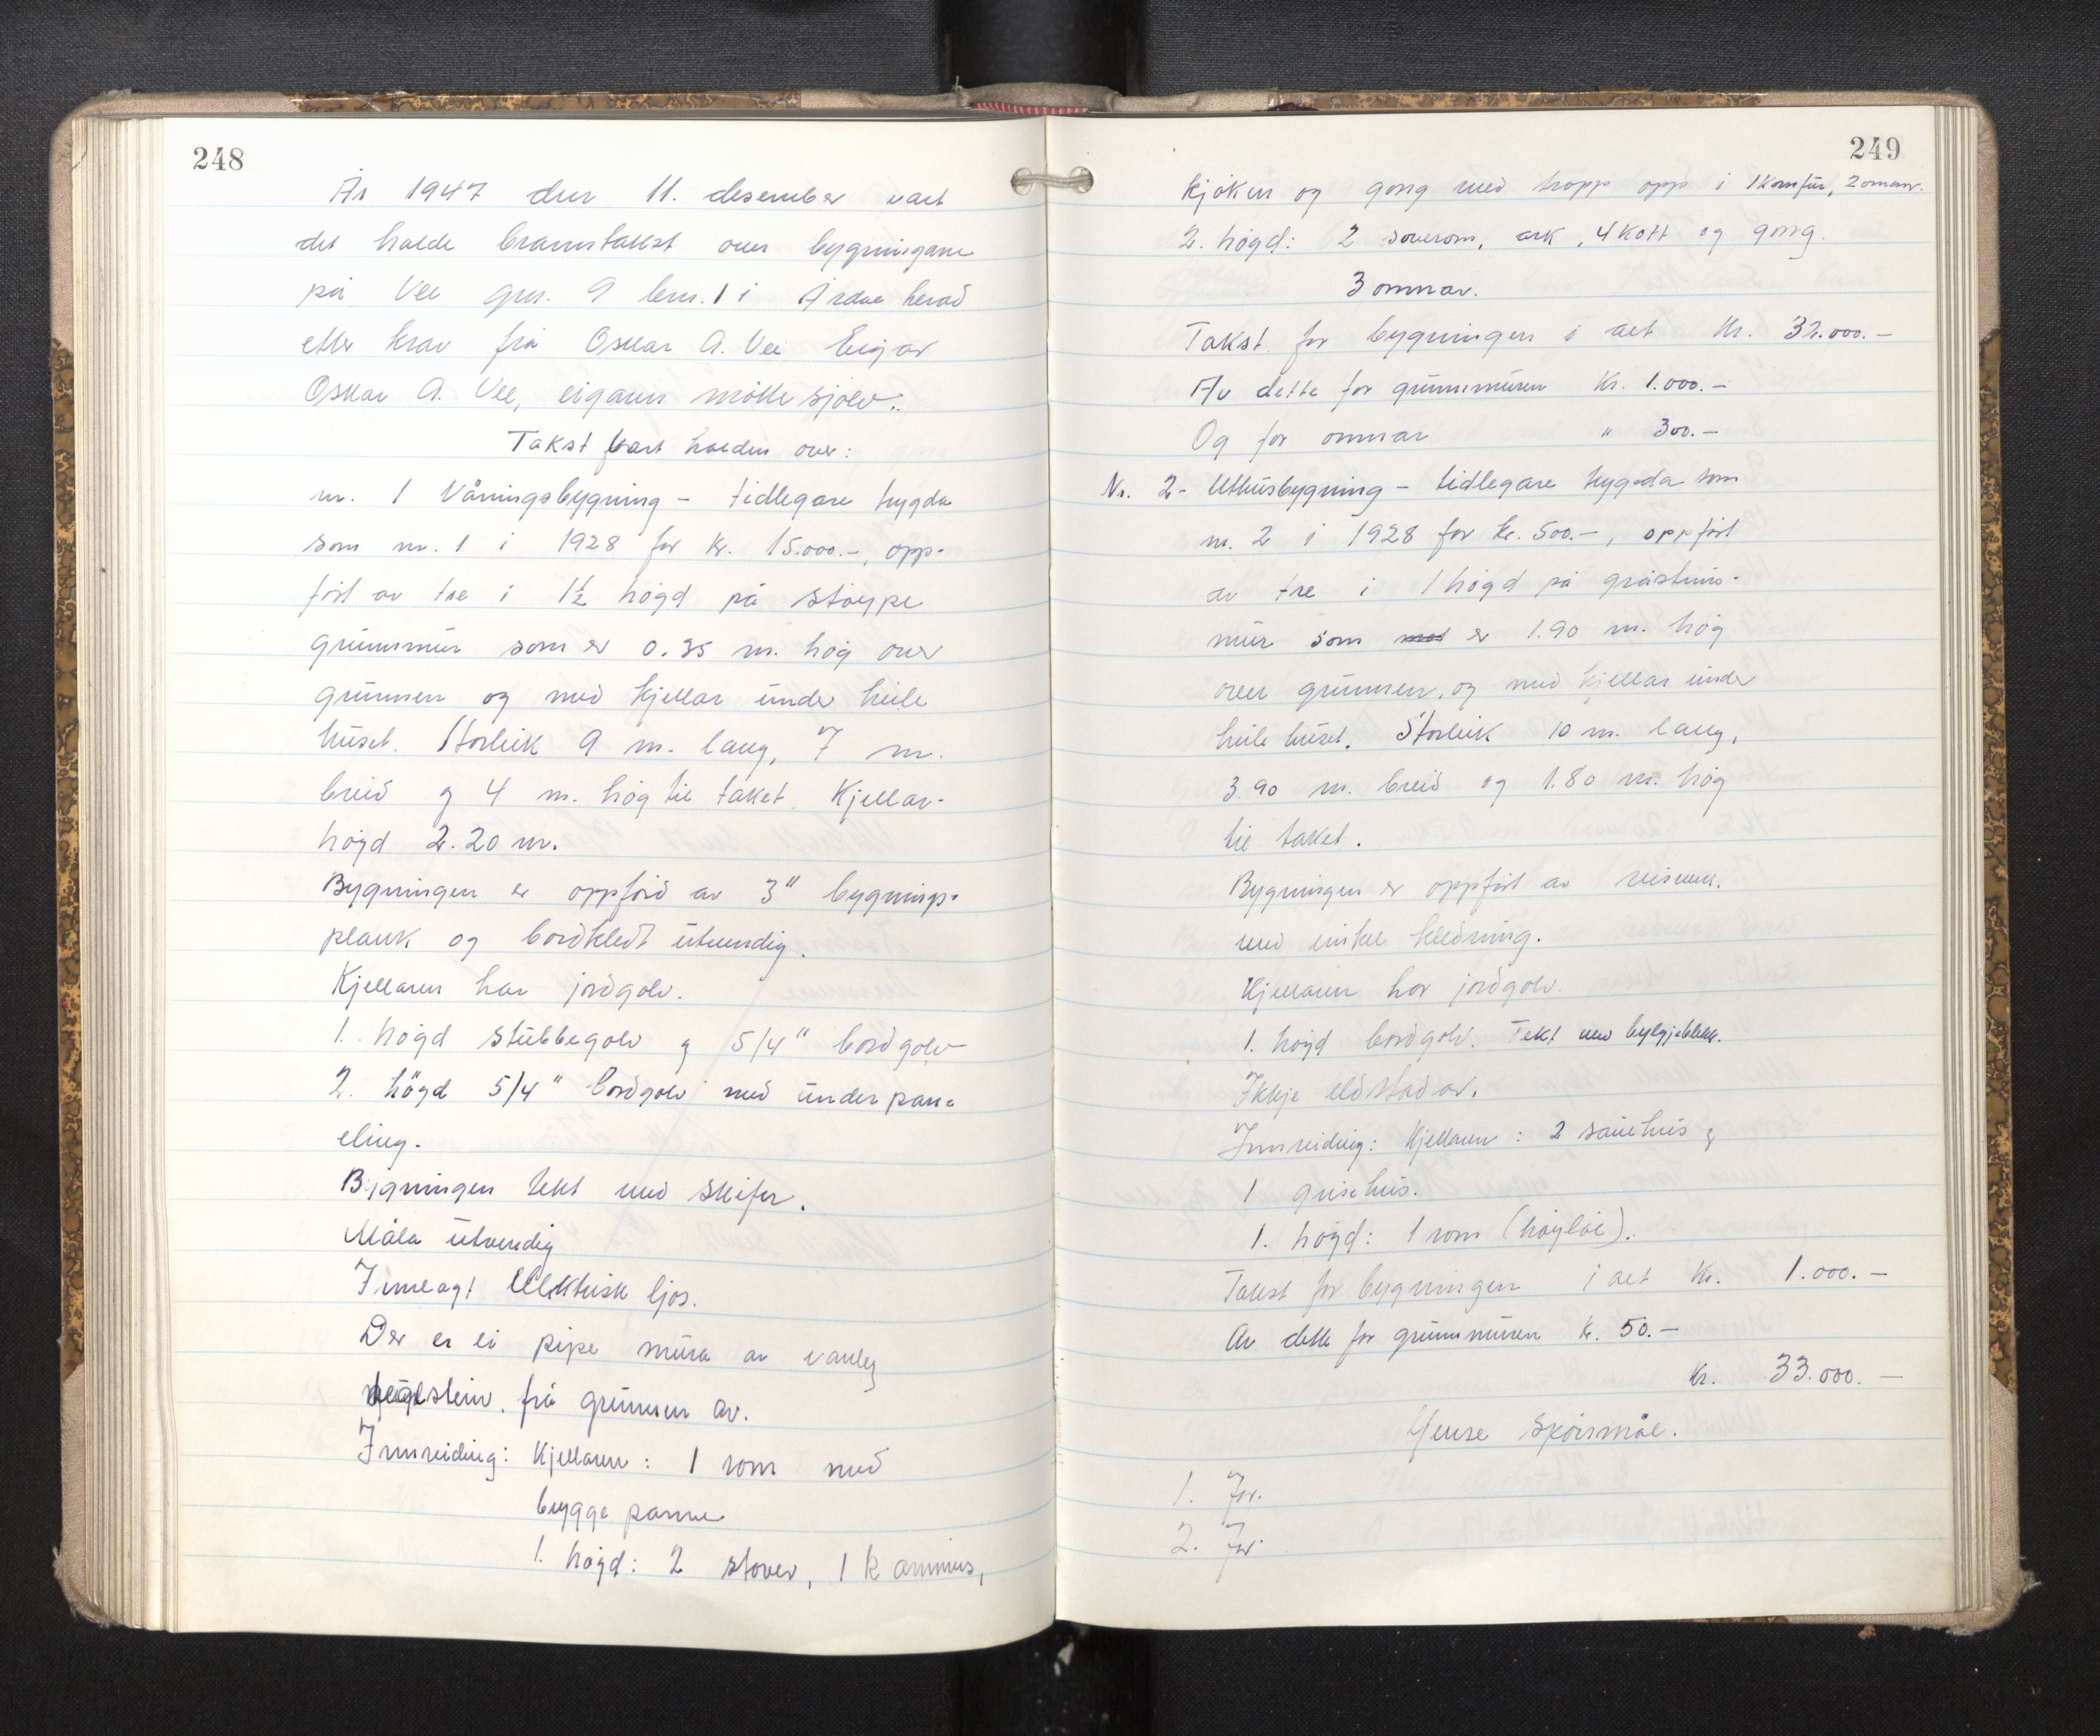 248
År 1947 den 11. desember vart
det halde branntakst over bygningane
på Vee gnr. 9 bnr. 1 i Årdal herad
etter krav frå Oskar A. Vee Eigar
Oskar A. Vee, eigaren møtte sjølv.
Takst vart halden over:
nr. 1 Våningsbygning - tidlegare trygda
som nr. 1 i 1928 for kr. 15.000.-, opp-
ført av tre i 1½ høgd på støype
grunnmur som er 0.35 m. høg over
grunnen og med kjellar under heile
huset. Storleik 9 m. lang, 7 m.
breid og 4 m. høg til taket. Kjellar-
høgd 2.20 m.
Bygningen er oppførd av 3" bygnings-
plank og bordkledt utvendig.
Kjellaren har jordgolv.
1. høgd stubbegolv og 5/4" bordgolv
2. høgd 5/4" bordgolv med underpan-
eling.
Bygningen tekt med skifer.
Måla utvendig
Innlagt elektrisk ljos.
Der er ei pipe mura av vanleg
teglstein frå grunnen av.
Innreiding: Kjellaren: 1 rom med
bryggepanne
1. høgd: 2 stover, 1 kammers,
249
kjøken og gong med tropp opp i 1 komfur, 2 omnar.
2. høgd: 2 soverom, ark, 4 kott og gong.
3 omnar.
Takst for bygningen i alt kr. 32.000.-
Av dette for grunnmuren kr. 1.000.-
Og for omnar " 300.-
Nr. 2- Uthusbygning - tidlegare trygda som
nr. 2 i 1928 for kr. 500.-, oppført
av tre i 1 høgd på gråsteins-
mur som er 1.90 m. høg
over grunnen og med kjellar under
heile huset. Storleik 10 m. lang,
3.90 m. breid og 1.80 m. høg
til taket.
Bygningen er oppført av reisverk.
med enkel kledning.
Kjellaren har jordgolv.
1. høgd bordgolv. Tekt med bylgjeblekk.
Ikkje eldstadar.
Innreiding: Kjellaren: 2 sauehus og
1 grisehus.
1. høgd: 1 rom (høyløe).
Takst for bygningen i alt kr. 1.000.-
Av dette for grunnmuren kr. 50.-
kr. 33.000.-
Ymse spørsmål.
1. Ja.
2. Ja.